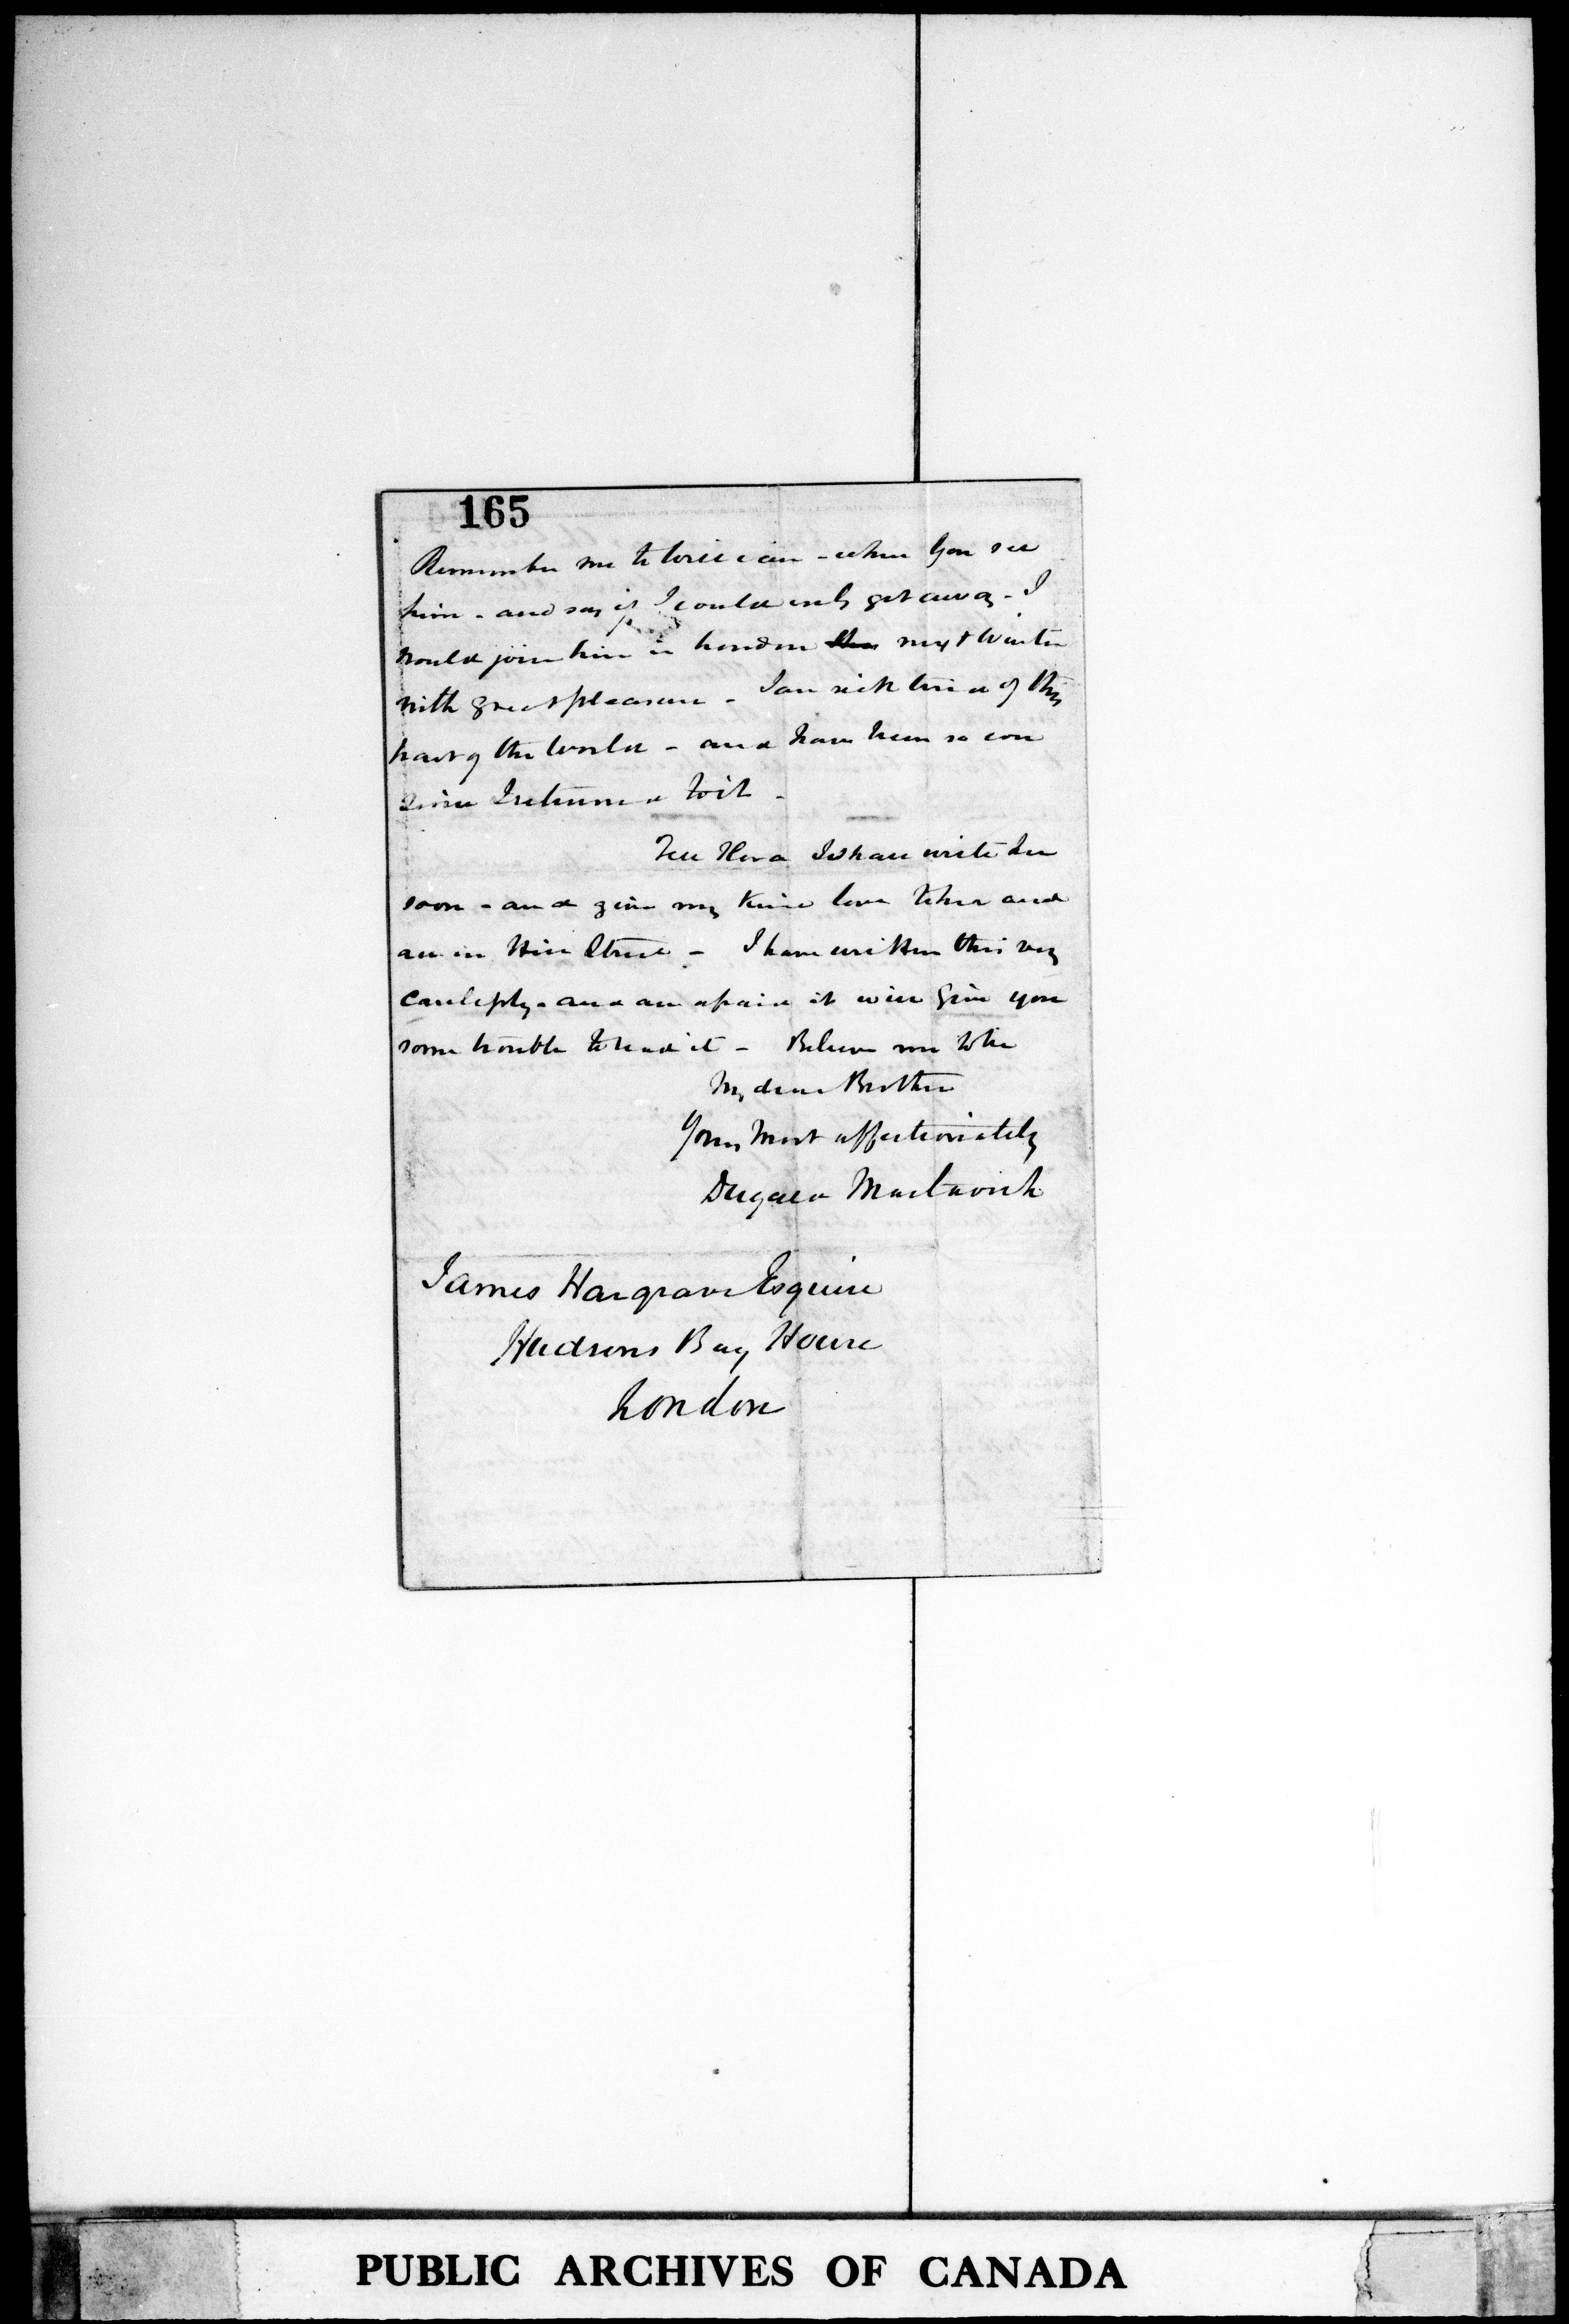 165
Remember me to William - when you see
him - and say if I could only get away - I
would join him in London next Winter
with great pleasure - I am sick tired of this
part of the World - and have been so ever
since I returned to it -
Tell Flora I shall write her
soon - and give my kind love to her and
all in Hill Street - I have written this very
carelessly - and am afraid it will give you
some trouble to read it - Believe me to be
My dear Brother
Yours Most affectionately
Dugald Mactavish
James Hargrave Esquire
Hudsons Bay House
London
PUBLIC ARCHIVES OF CANADA